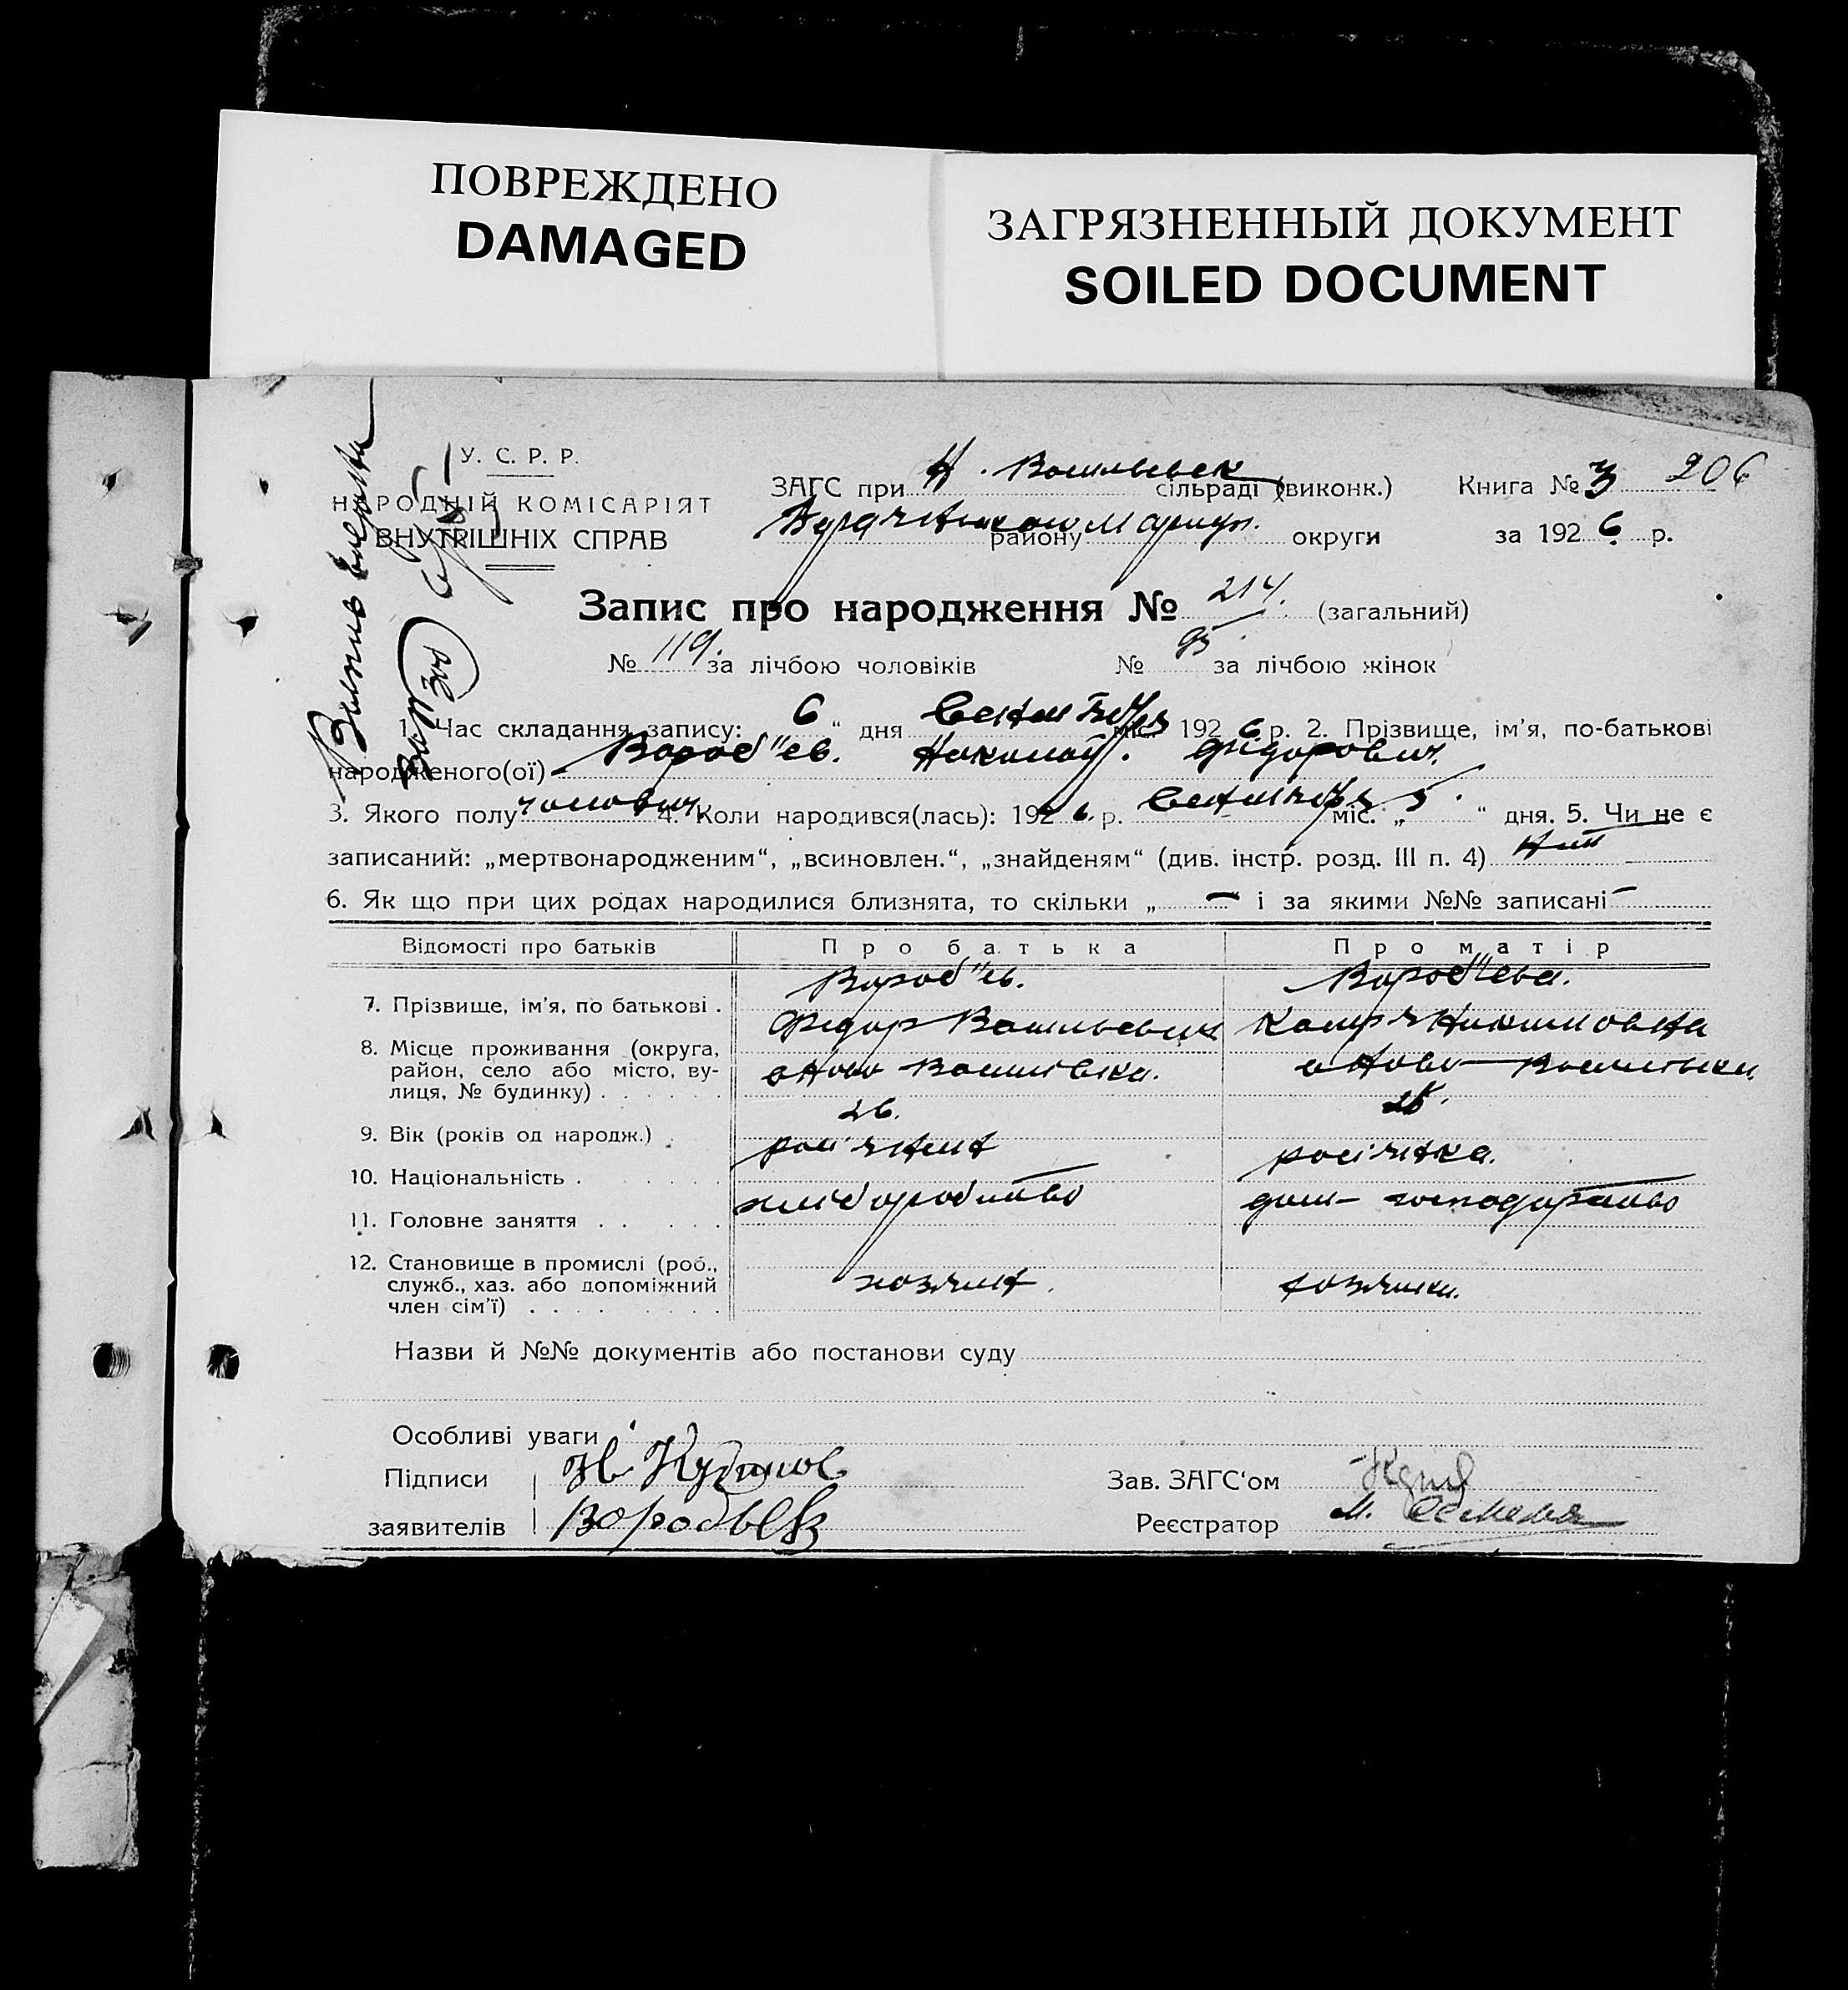 ПОВРЕЖДЕНО
DAMAGED
ЗАГРЯЗНЕННЫЙ ДОКУМЕНТ
SOILED DOCUMENT
У. С. Р. Р.
НАРОДНІЙ КОМІСАРІЯТ
ВНУТРІШНІХ СПРАВ
ЗАГС при Н. Васильевск сільраді (виконк.)
району Маріуп. округи
Книга № 3 206
за 1926 р.
Запис про народження № 214. (загальний)
№ 119. за лічбою чоловіків № 95. за лічбою жінок
1. Час складання запису: 6 " дня Сентября міс. 1926 р. 2. Прізвище, ім'я, по-батькові
народженого(ої) Вороб"ев. Николай. Фідорович.
3. Якого полу чоловіч. 4. Коли народився(лась): 1926 р. Сентября міс. „ 5 " дня. 5. Чи не є
записаний: „мертвонародженим“, „всиновлен.“, „знайденям“ (див. інстр. розд. III п. 4)
6. Як що при цих родах народилися близнята, то скільки „ — " і за якими №№ записані —
Відомості про батьків Про батька Про матір
7. Прізвище, ім'я, по батькові . Вороб"ев. Вороб"ева.
Федор Васильевич
8. Місце проживання (округа, район, село або місто, вулиця, № будинку) . . . . . . с Ново Василівка. с Ново-Васильевка
9. Вік (років од народж.) . 26. 25.
10. Національність . . . . . . росіянин росіянка.
11. Головне заняття . . . . . хліборобство дом-господарство
12. Становище в промислі (роб., служб., хаз. або допоміжний член сім'ї) . . . . . . . . хозяин. хозяйка.
Назви й №№ документів або постанови суду
Особливі уваги
Підписи
заявителів Воробьев
Зав. ЗАГС‘ом
Реєстратор М.